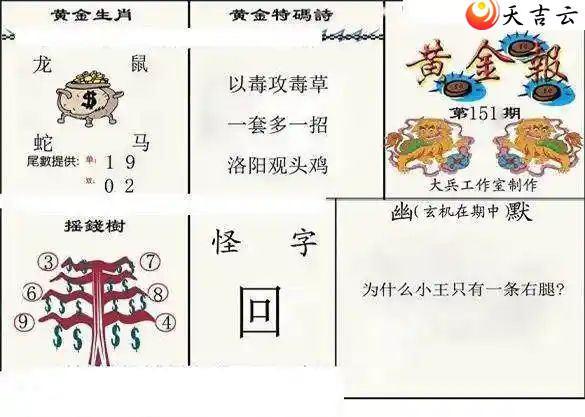 天吉云
黄金生肖
龙 鼠
$
蛇 马
尾數提供: 单: 1 9
双: 0 2
黄金特碼詩
以毒攻毒草
一套多一招
洛阳观头鸡
黄金報
第151期
大兵工作室制作
摇錢樹
③ ⑦
⑥ ⑧
⑨ ④
怪 字
回
幽(玄机在期中)默
为什么小王只有一条右腿?